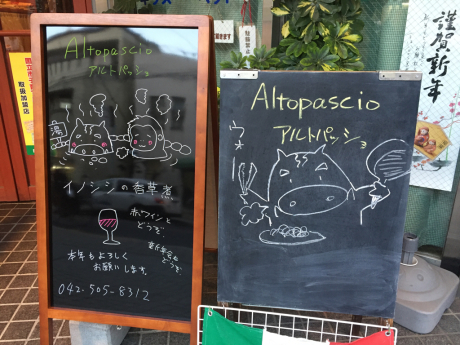 Altopascio
アルトパッショ
湯
イノシシの香草煮
赤ワインと
どうぞ
本年もよろしく
お願いします。
042-505-8312
Altopascio
アルトパッショ
謹賀新年
取扱加盟店